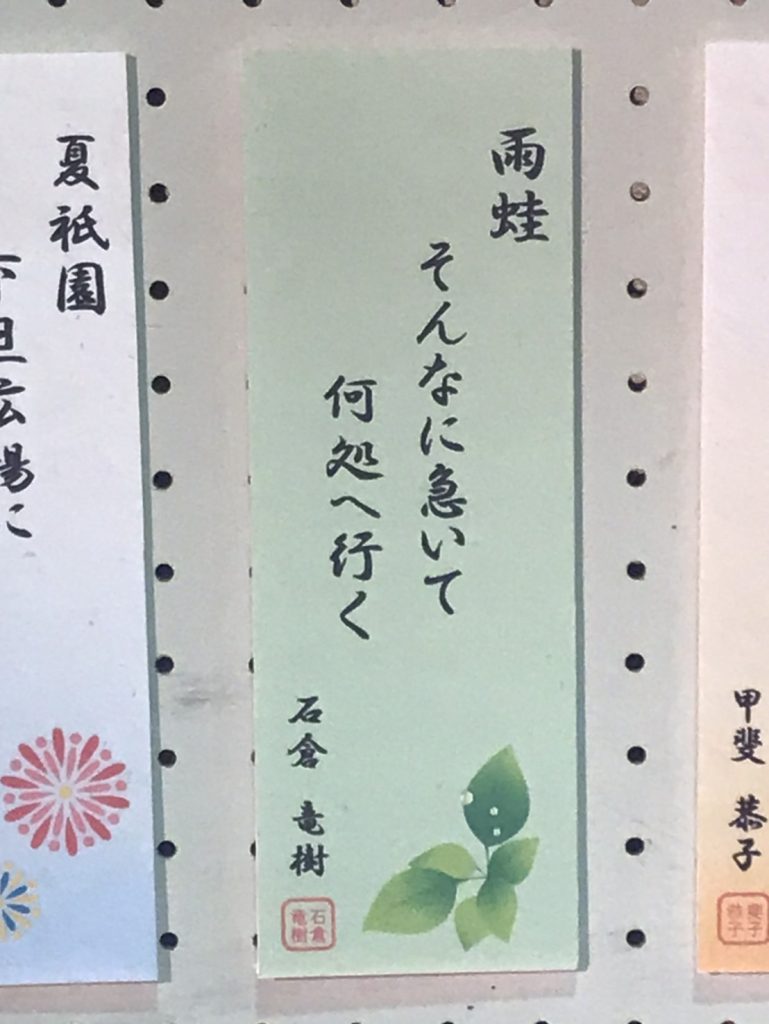 甲斐 恭子
雨蛙
そんなに急いて
何処へ行く
石倉 竜樹
石倉
竜樹
夏祇園